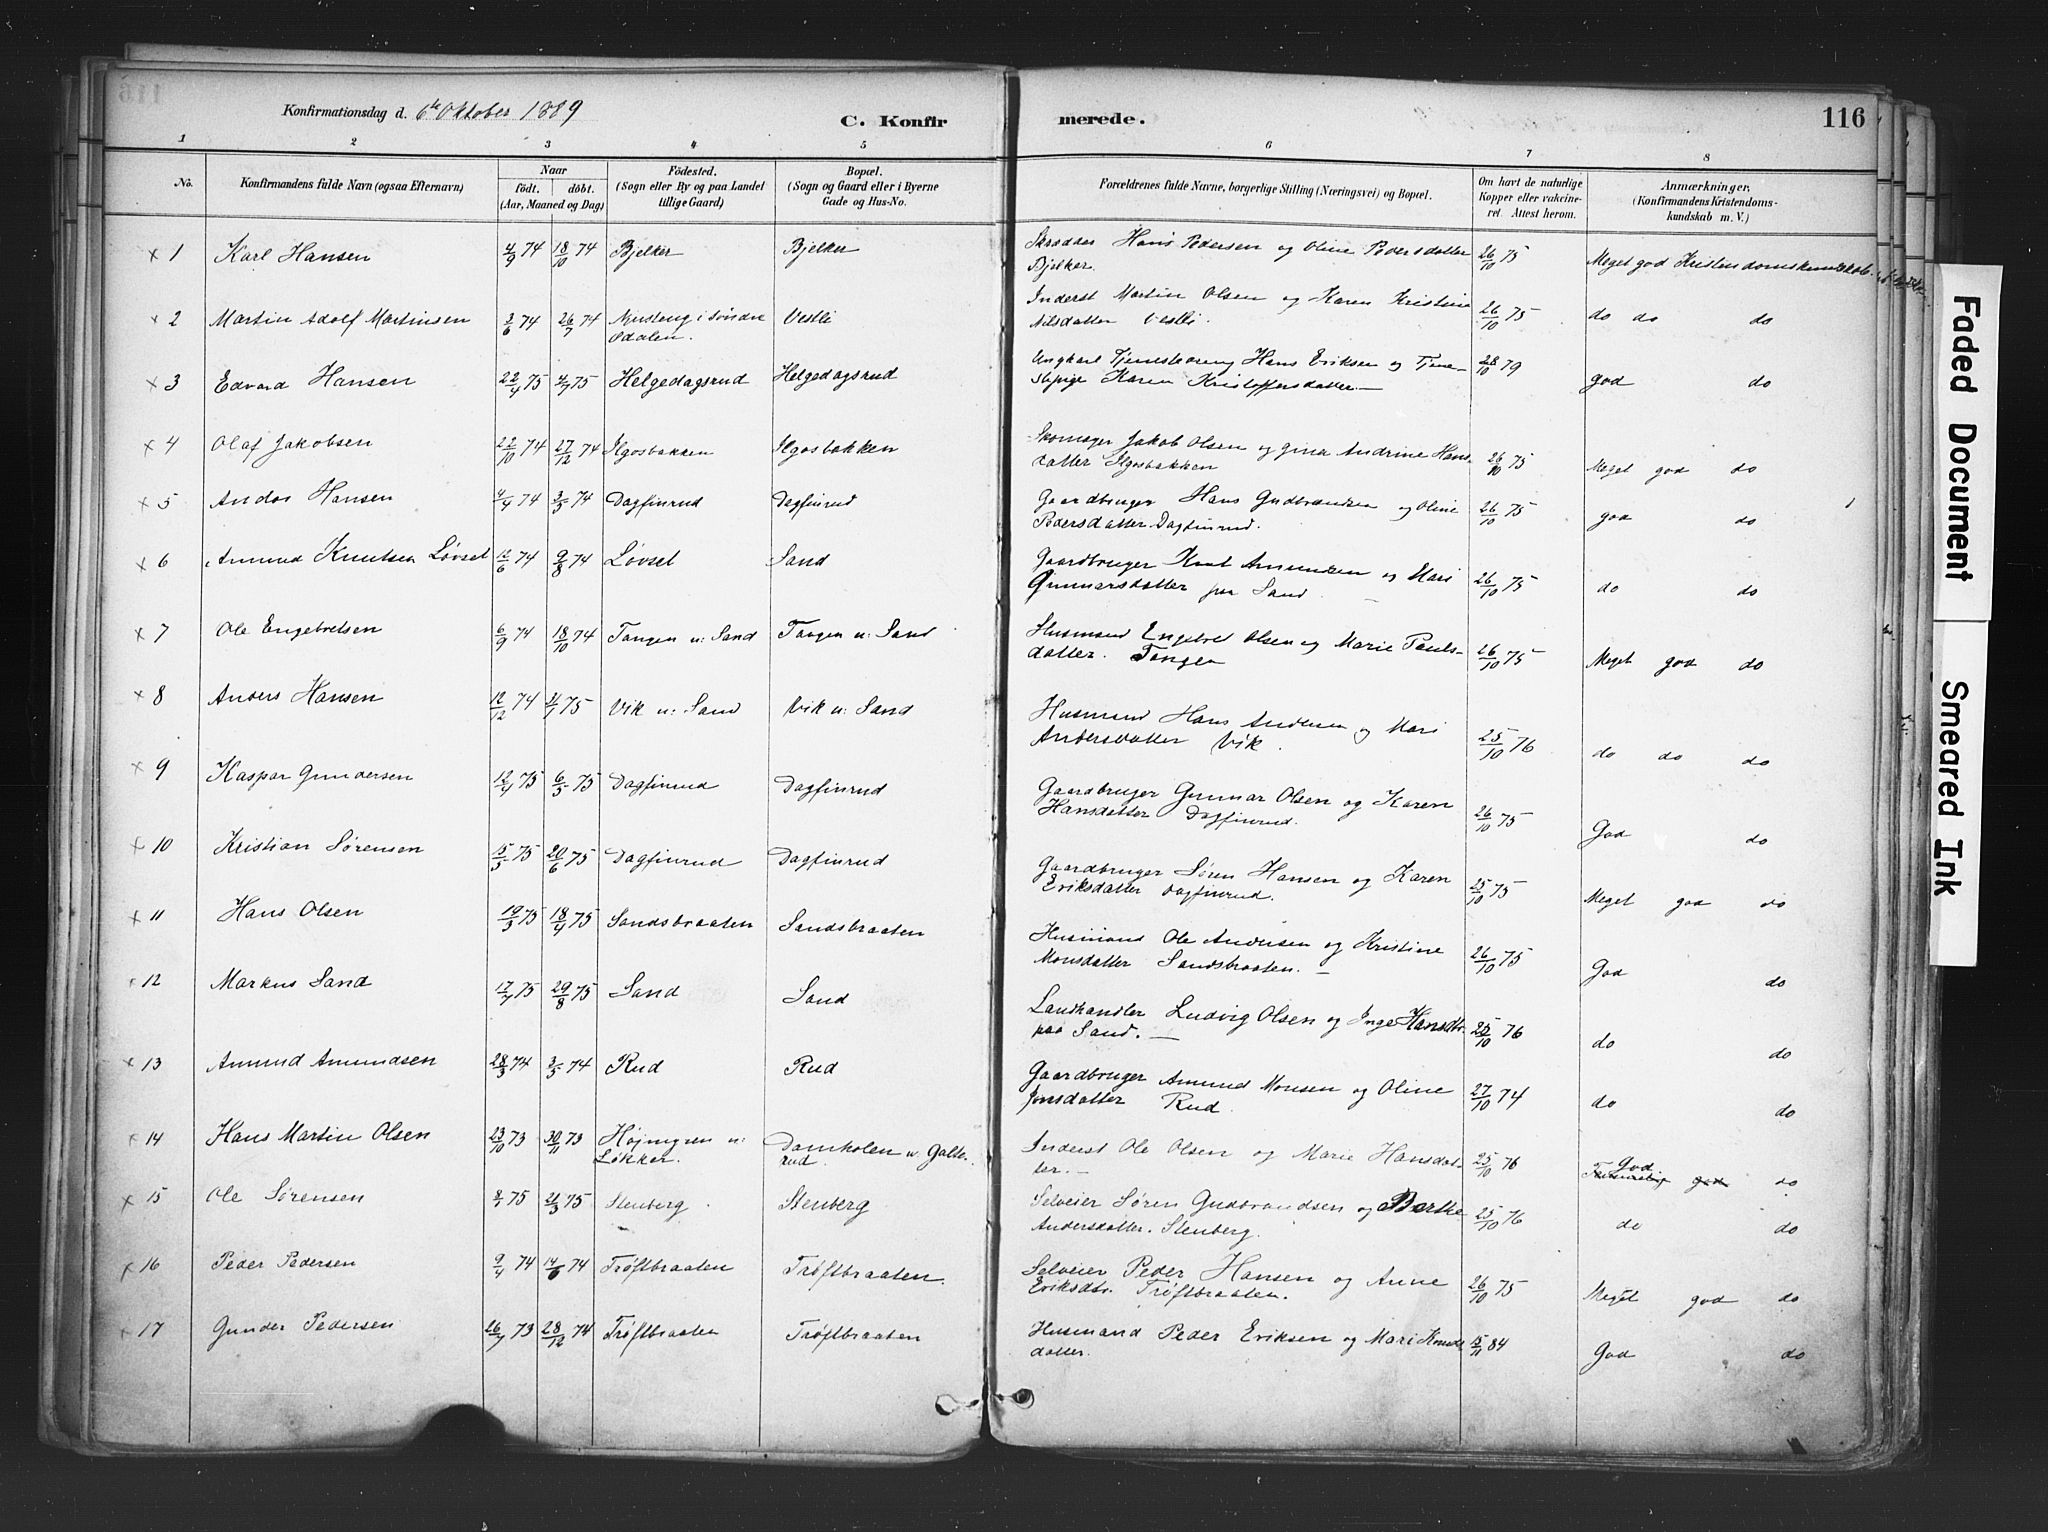 Konfirmationsdag d. 6te Oktober 1889
C. Konfir merede. 116
1 2 3 4 5 6 7 8
No. Konfirmandens fulde Navn (ogsaa Efternavn) Naar født. døbt. (Aar, Maaned og Dag) Födested. (Sogn eller By og paa Landet tillige Gaard) Bopæl. (Sogn og Gaard eller i Byerne Gade og Hus-No. Forældrenes fulde Navne, borgerlige Stilling (Næringsvei) og Bopæl. Om havt de naturlige Kopper eller vakcineret. Attest herom. Anmærkninger. (Konfirmandens Kristendomskundskab m. V.)
x 1 Karl Hansen 4/9 74 18/10 74 Bjelker Bjelker Skrædder Hans Pedersen og Oline Pedersdatter 26/10 75 Meget god Kristendomskundskab.
Bjelker.
x 2 Martin Adolf Martinsen 2/6 74 26/7 74 i Söndre Vestli Inderst Martin Olsen og Karen Kristine 26/10 75 do do do
Odalen. Nilsdatter Vestli.
x 3 Edvard Hansen 22/4 75 4/7 75 Helgedagsrud Helgedagsrud Ungkarl Hans Eriksen og Tjene- 28/10 79 god do
stepige Karen Kristoffersdatter.—
x 4 Olaf Jakobsen 22/10 74 27/12 74 Ilgosbakken Ilgosbakken Skomager Jakob Olsen og Gina Andrine Hans- 26/10 75 Meget god do
datter Ilgosbakken
x 5 Anders Hansen 4/4 74 3/5 74 Dagfinrud Dagfinrud Gaardbruger Hans Gudbrandsen og Oline 26/10 75 god do
Pedersdatter Dagfinrud.
x 6 Amund Knutsen Løvset 12/6 74 9/8 74 Løvset Sand Gaardbruger Knut Amundsen og Mari 26/10 75 do do
Gunnarsdatter paa Sand.
x 7 Ole Engebretsen 6/9 74 18/10 74 Tangen u: Sand Tangen u: Sand Husmand Engebret Olsen og Marie Pauls- 26/10 75 Meget god do
datter. Tangen
x 8 Anders Hansen 12/12 74 75 Vik u: Sand Vik u: Sand Husmand Hans Andersen og Mari 25/10 76 do do do
Andersdatter Vik.
x 9 Kaspar Gundersen 12/4 75 6/5 75 Dagfinrud Dagfinrud Gaardbruger Gunnar Olsen og Karen 26/10 75 God do
Hansdatter Dagfinrud.
x 10 Kristian Sørensen 15/5 75 20/6 75 Dagfinrud Dagfinrud Gaardbruger Søren Hansen og Karen 25/10 75 Meget god do
Eriksdatter Dagfinrud.
x 11 Hans Olsen 19/3 75 18/4 75 Sandsbraaten Sandsbraaten Husmand Ole Andersen og Kristine 26/10 75 God do
Monsdatter Sandsbraaten.—
x 12 Markus Sand 17/7 75 29/8 75 Sand Sand Landhandler Ludvig Olsen og Inge Hansdtr. 25/10 76 do do
paa Sand.—
x 13 Amund Amundsen 28/3 74 3/5 74 Rud Rud Gaardbruger Amund Monsen og Oline 27/10 74 do do
Jonsdatter Rud.
x 14 Hans Martin Olsen 23/10 73 30/11 73 Højmyren u: Damholen u. Galte- Inderst Ole Olsen og Marie Hansdat- 25/10 76 God do
Løkker. rud. ter.—
x 15 Ole Sørensen 75 21/3 75 Stenberg Stenberg Selveier Søren Gudbrandsen og Berthe 25/10 76 do do
Andersdatter. Stenberg.
x 16 Peder Pedersen 9/4 74 14/6 74 Trøftbraaten Trøftbraaten. Selveier Peder Hansen og Anne 26/10 75 Meget god do
Eriksdtr. Trøftbraaten.
x 17 Gunder Pedersen 26/7 73 28/12 74 Trøftbraaten Trøftbraaten Husmand Peder Eriksen og Mari Knuds- 15/11 84 God do
datter.
Faded Document
Smeared Ink